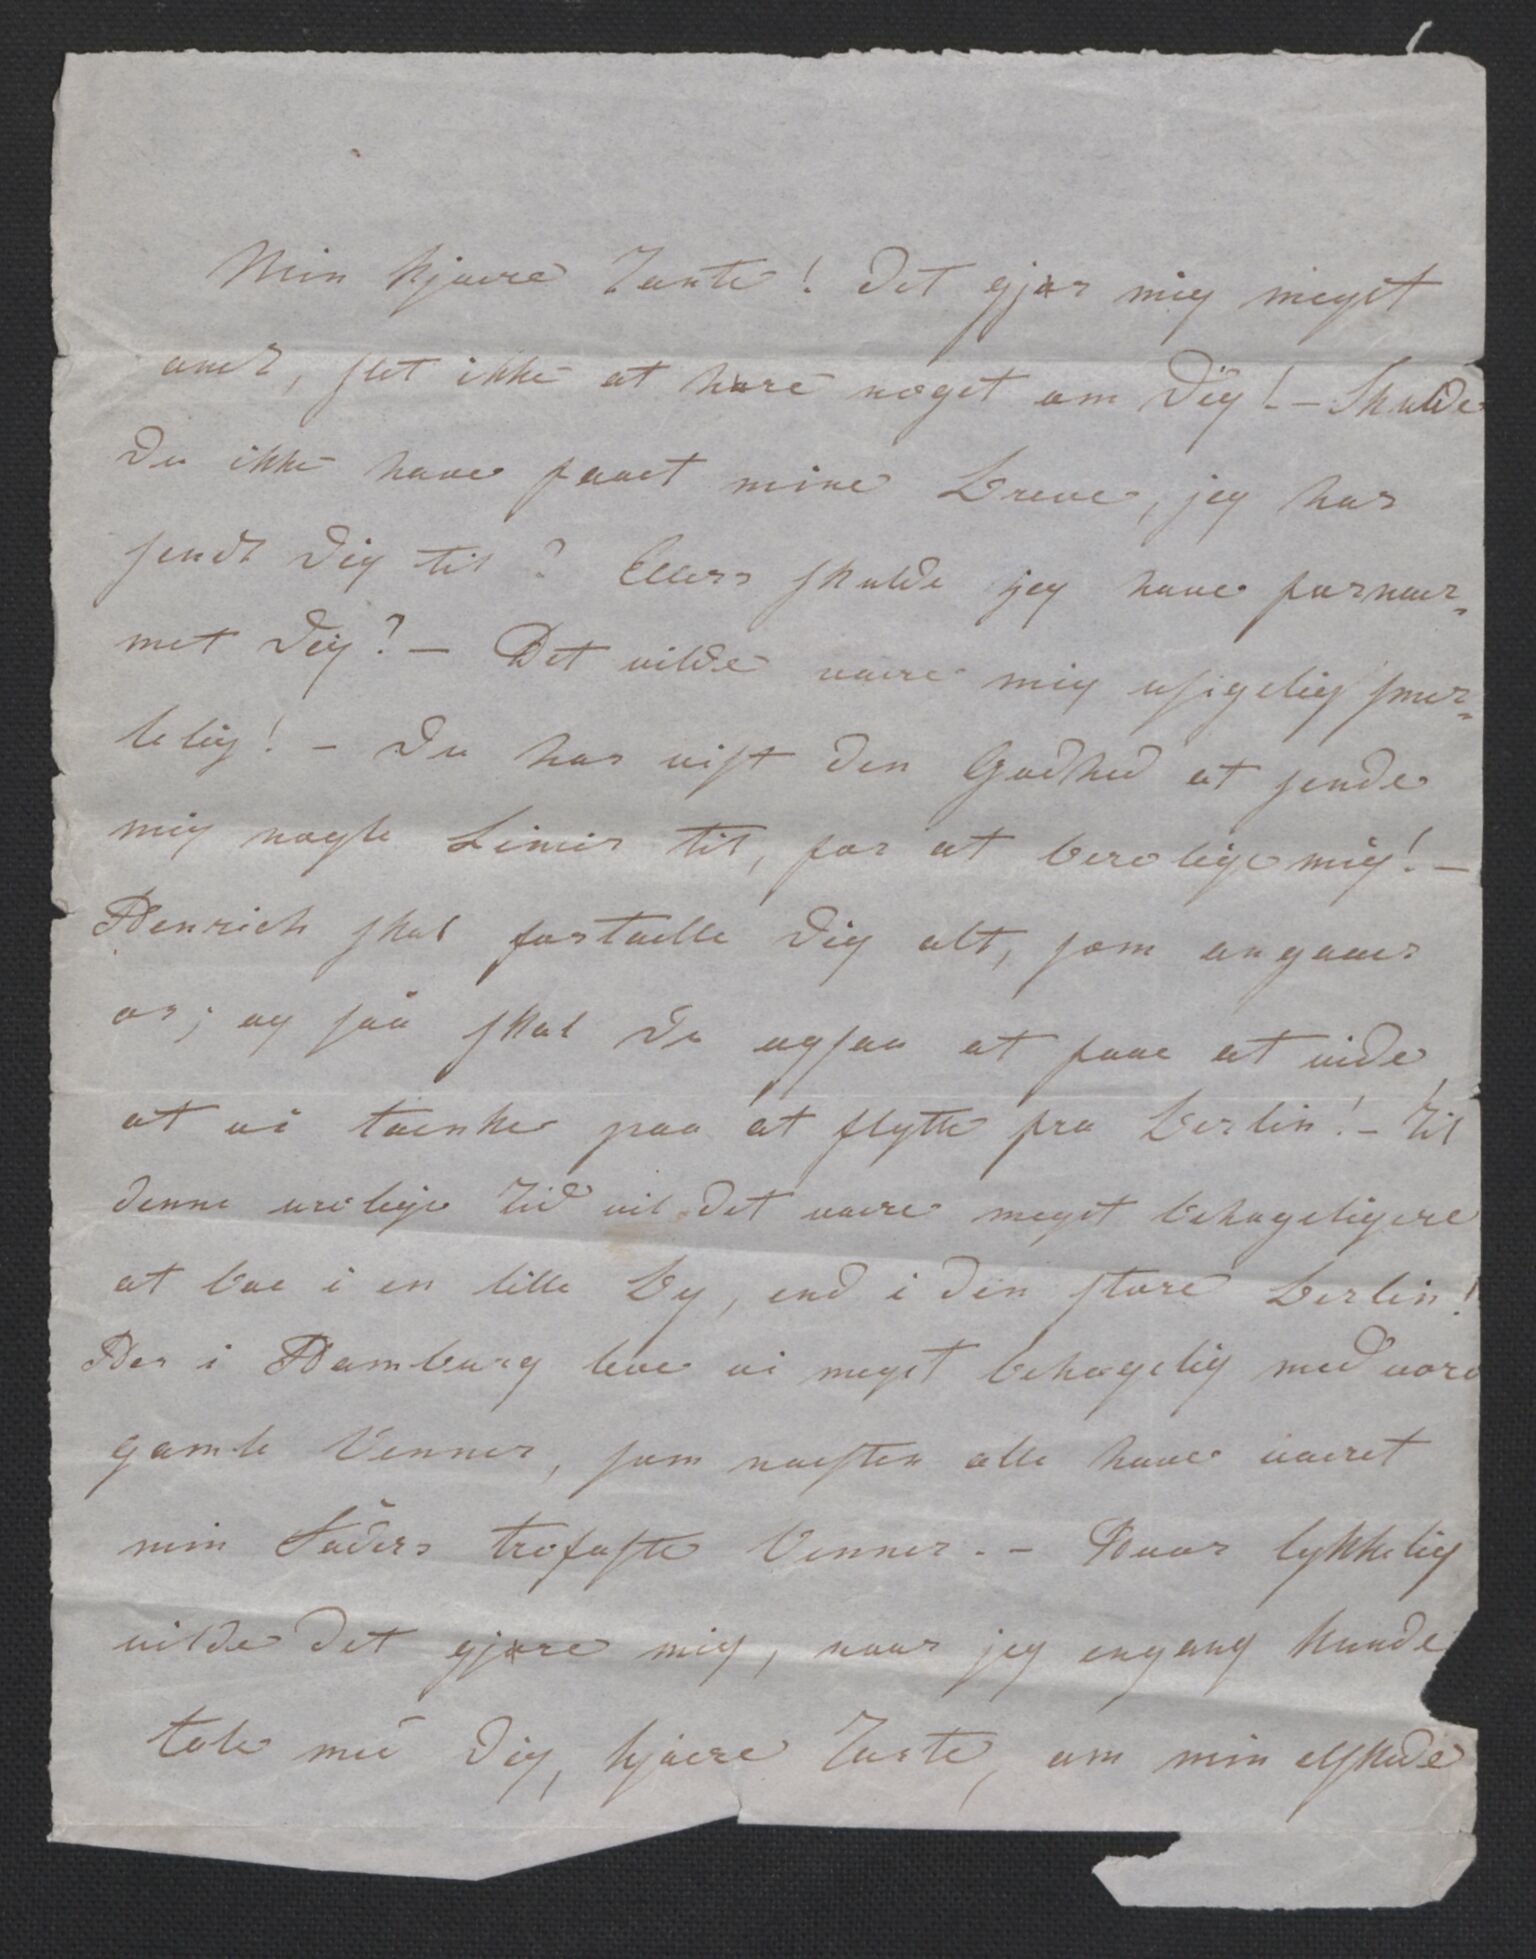 Min kjaere Tante! Det gjør mig meget
ondt, slet ikke at høre noget om Dig! - Skulde
Du ikke have faaet mine Breve, jeg har
sendt Dig til? Ellers skulde jeg have fornær-
met Dig? - Det vilde vaere mig usigelig smer-
telig! - Du har vist den Godhed at sende
mig nogle Linier til, for at berolige mig! -
Henrich skal fortaelle Dig alt, som angaaer
os; og saa skal Du ogsaa at faae at vide
at vi taenke paa at flytte fra Berlin! - Til
denne urolige Tid vil det vaere meget behageligere
at boe i en lille By, end i den store Berlin!
Her i Hamburg leve vi meget behagelig med vore
gamle Venner, som naesten alle have vaeret
min Faders trofaste Venner. - Hvor lykkelig
vilde det gjøre mig, naar jeg engang kunde
tale med Dig, kjaere Tante, om min elskede